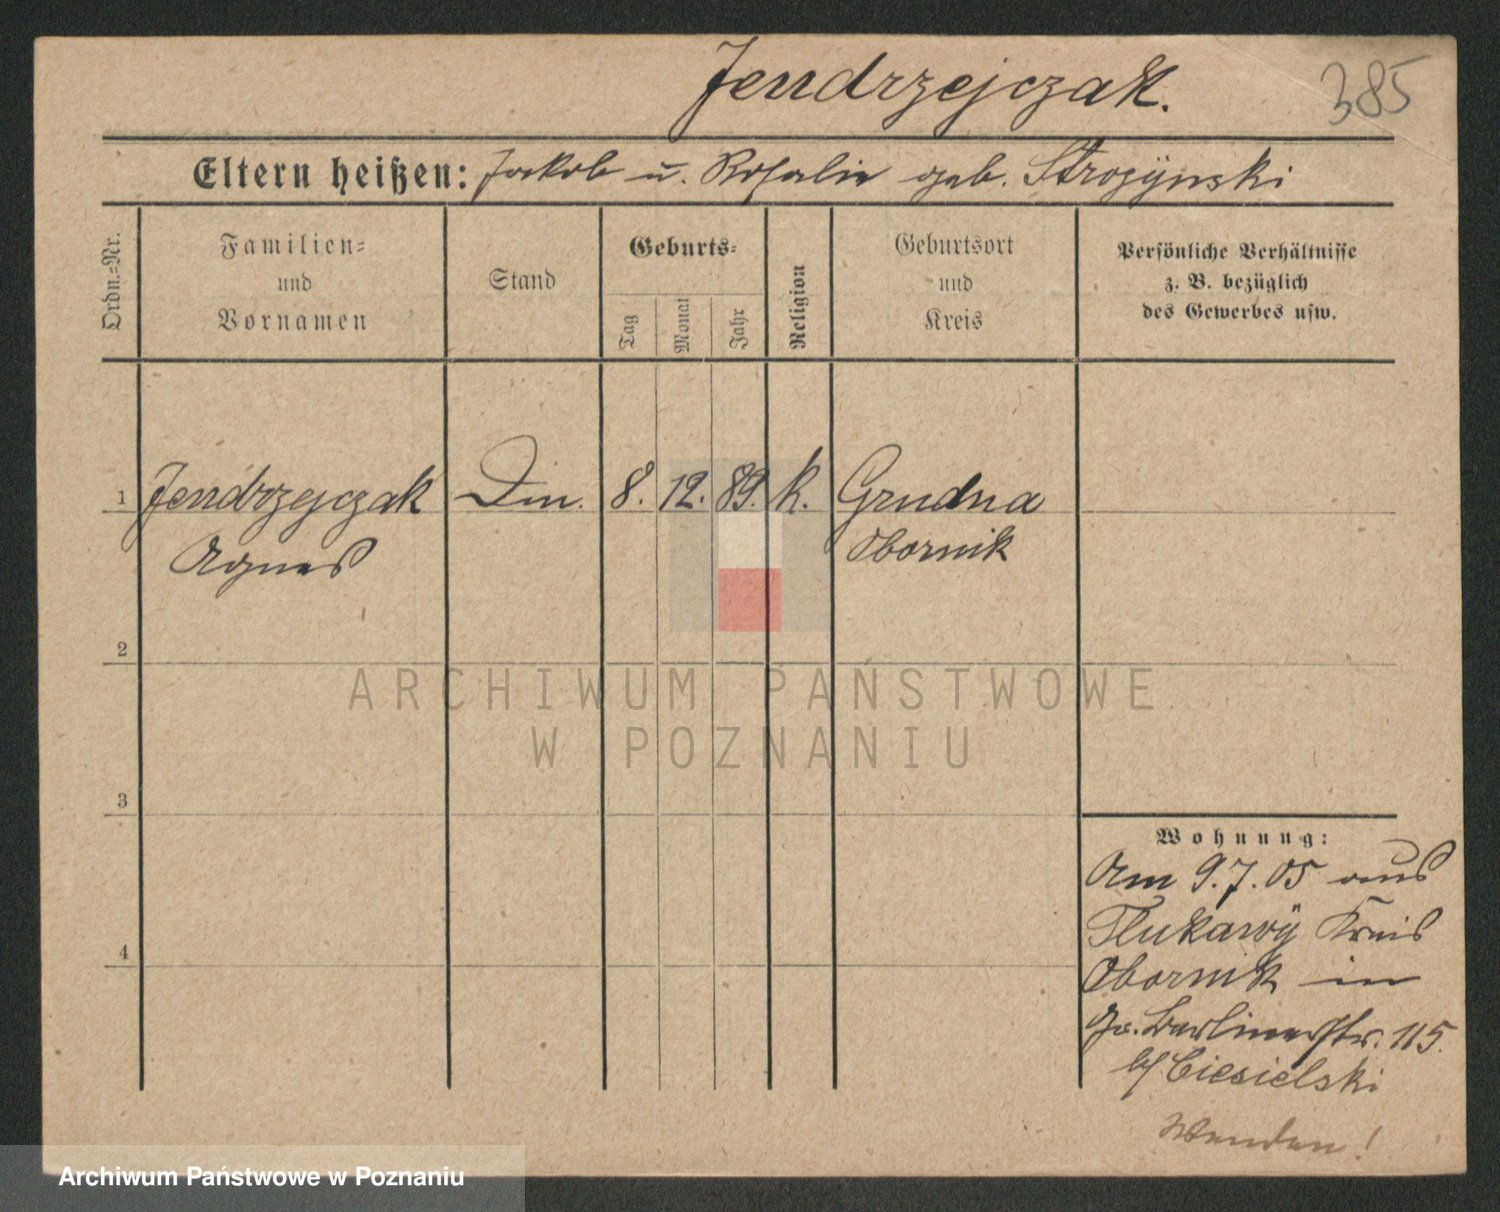 Jendrzejczak.
385
Eltern heißen: Jakob u. Rosalie geb. Strozÿnski
Ordn.=Nr.
Familien=
und
Vornamen
Stand
Geburts=
Tag
Monat
Jahr
Religion
Geburtsort
und
Kreis
Persönliche Verhältnisse
z. B. bezüglich
des Gewerbes usw.
1 Jendrzejczak Din. 8. 12. 89. k. Grudna
Agnes Obornik
2
3
4
Wohnung:
Am 9.7.05 aus
Tlukawÿ Kreis
Obornik in
Gr. Berlinerstr. 115.
b/ Ciesielski
Wenden!
ARCHIWUM PAŃSTWOWE
W POZNANIU
Archiwum Państwowe w Poznaniu